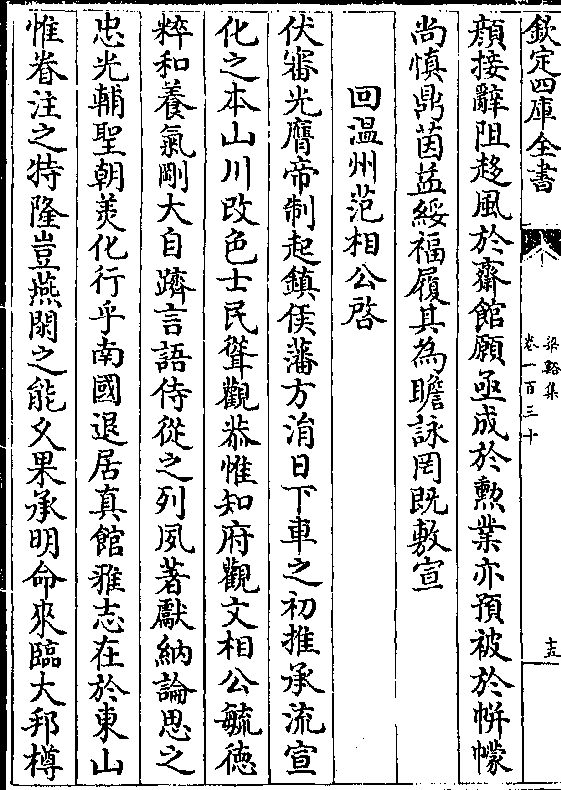 欽定四庫全書
梁谿集
卷一百三十
十五
顔接辭阻趍風於齋館願亟成於勲業亦預被於帡幪
尚慎鼎茵益綏福履其為瞻詠罔既敷宣
回温州范相公啓
伏審光膺帝制起鎮侯藩方消日下車之初推承流宣
化之本山川改色士民聳觀恭惟知府觀文相公毓德
粹和養氣剛大自躋言語侍從之列夙著獻納論思之
忠光輔聖朝羙化行乎南國退居真館雅志在於東山
惟眷注之特隆豈燕閑之能久果承明命來臨大邦樽